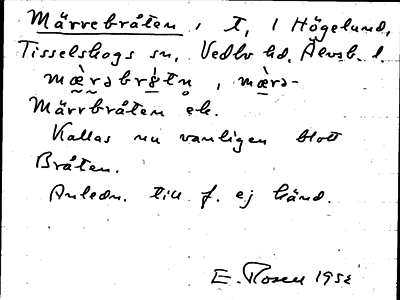 Märrebråten, t, 1 Högelund,
Tisselskogs sn, Vedbo hd, Älvsb. l.
mæ̀rəbrå̀tn̥, mæ̀rə-
Märrbråten ek.
Kallas nu vanligen blott
Bråten.
Anledn. till f. ej känd.
E. Rosell 1952